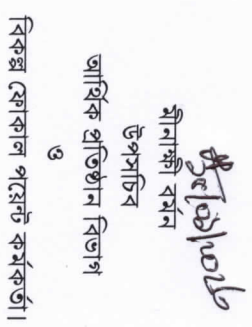 মীনাক্ষী বর্মন
উপসচিব
আর্থিক প্রতিষ্ঠান বিভাগ
ও
বিকল্প ফোকাল পয়েন্ট কর্মকর্তা।